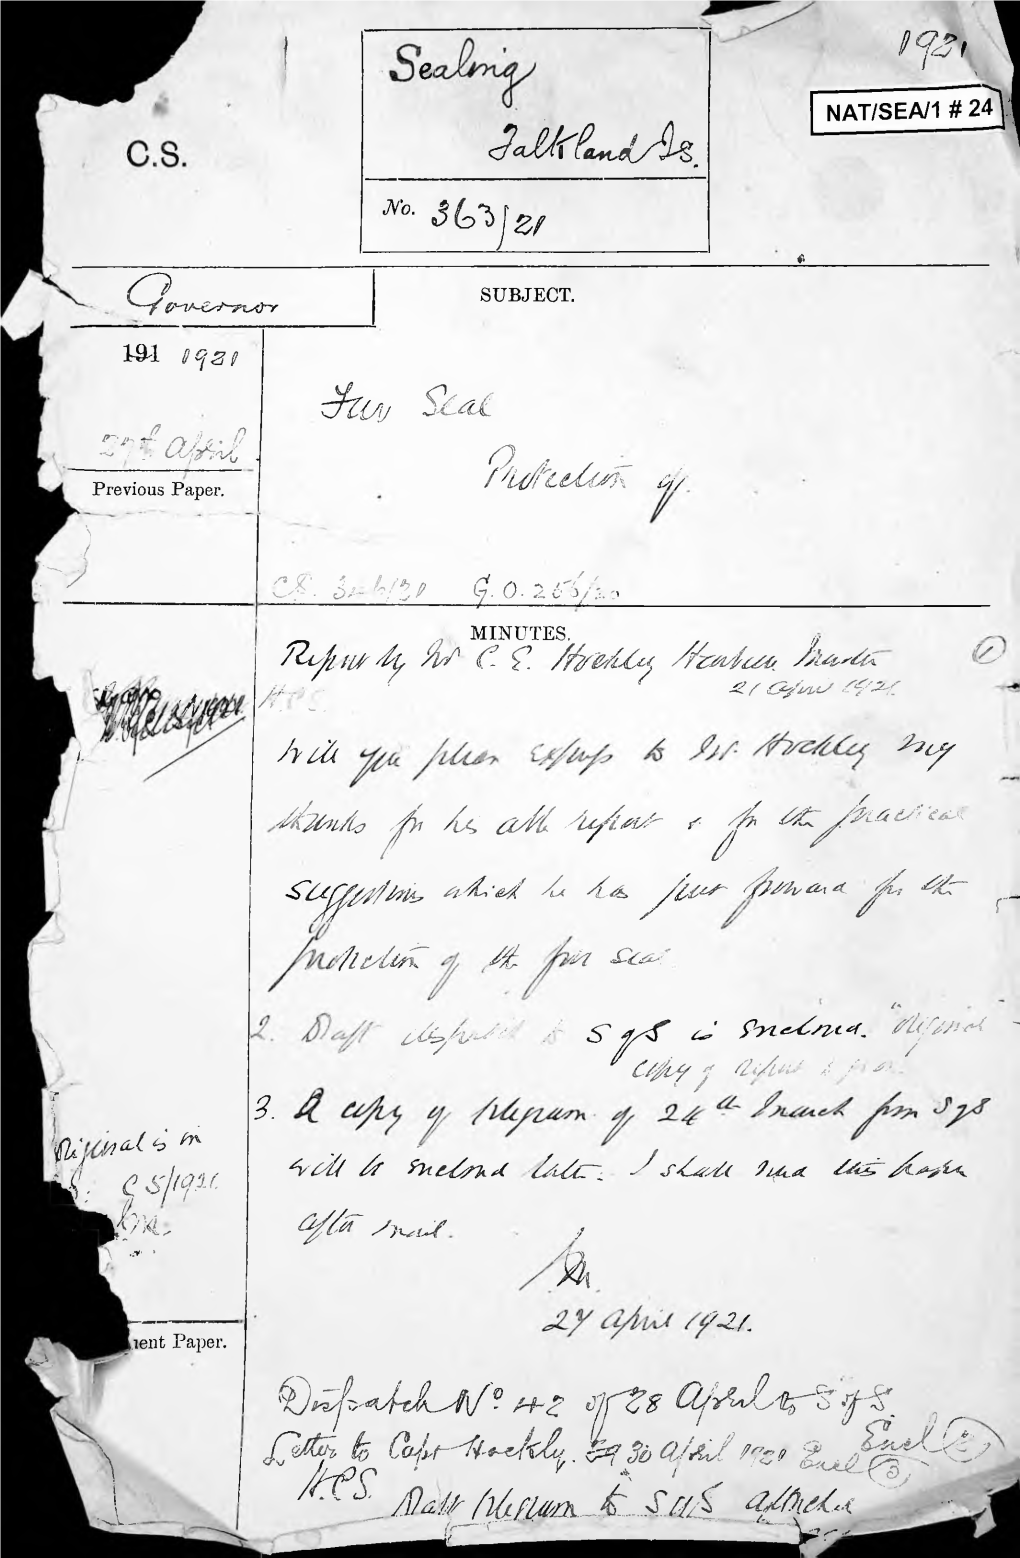 1921
NAT/SEA/1 # 24
C.S.
Sealing
Falkland Is.
No. 363/21
Governor
SUBJECT.
191 1921
27th April
Previous Paper.
Fur Seal
Protection of.
C.S. 346/20 G.O. 256/20
MINUTES.
Report by Mr C. E. Hockley Harbour Master 1
21 April 1921.
H.C.S.
Will you please express to Mr. Hockley my
thanks for his able report & for the practical
suggestions which he has put forward for the
protection of the fur seal
2. Draft despatch to S of S is enclosed. "Original
copy of report
3. A copy of telegram of 24th March from S of S
will be enclosed later. I shall need this paper
after mail.
Original is in
C.S/1921
27 April 1921.
ent Paper.
Dispatch No 42 of 28 April to S of S. Encl 2
Letter to Capt Hockly. 30 April 1921 Encl 3
H.C.S.
Draft telegram to S of S attached